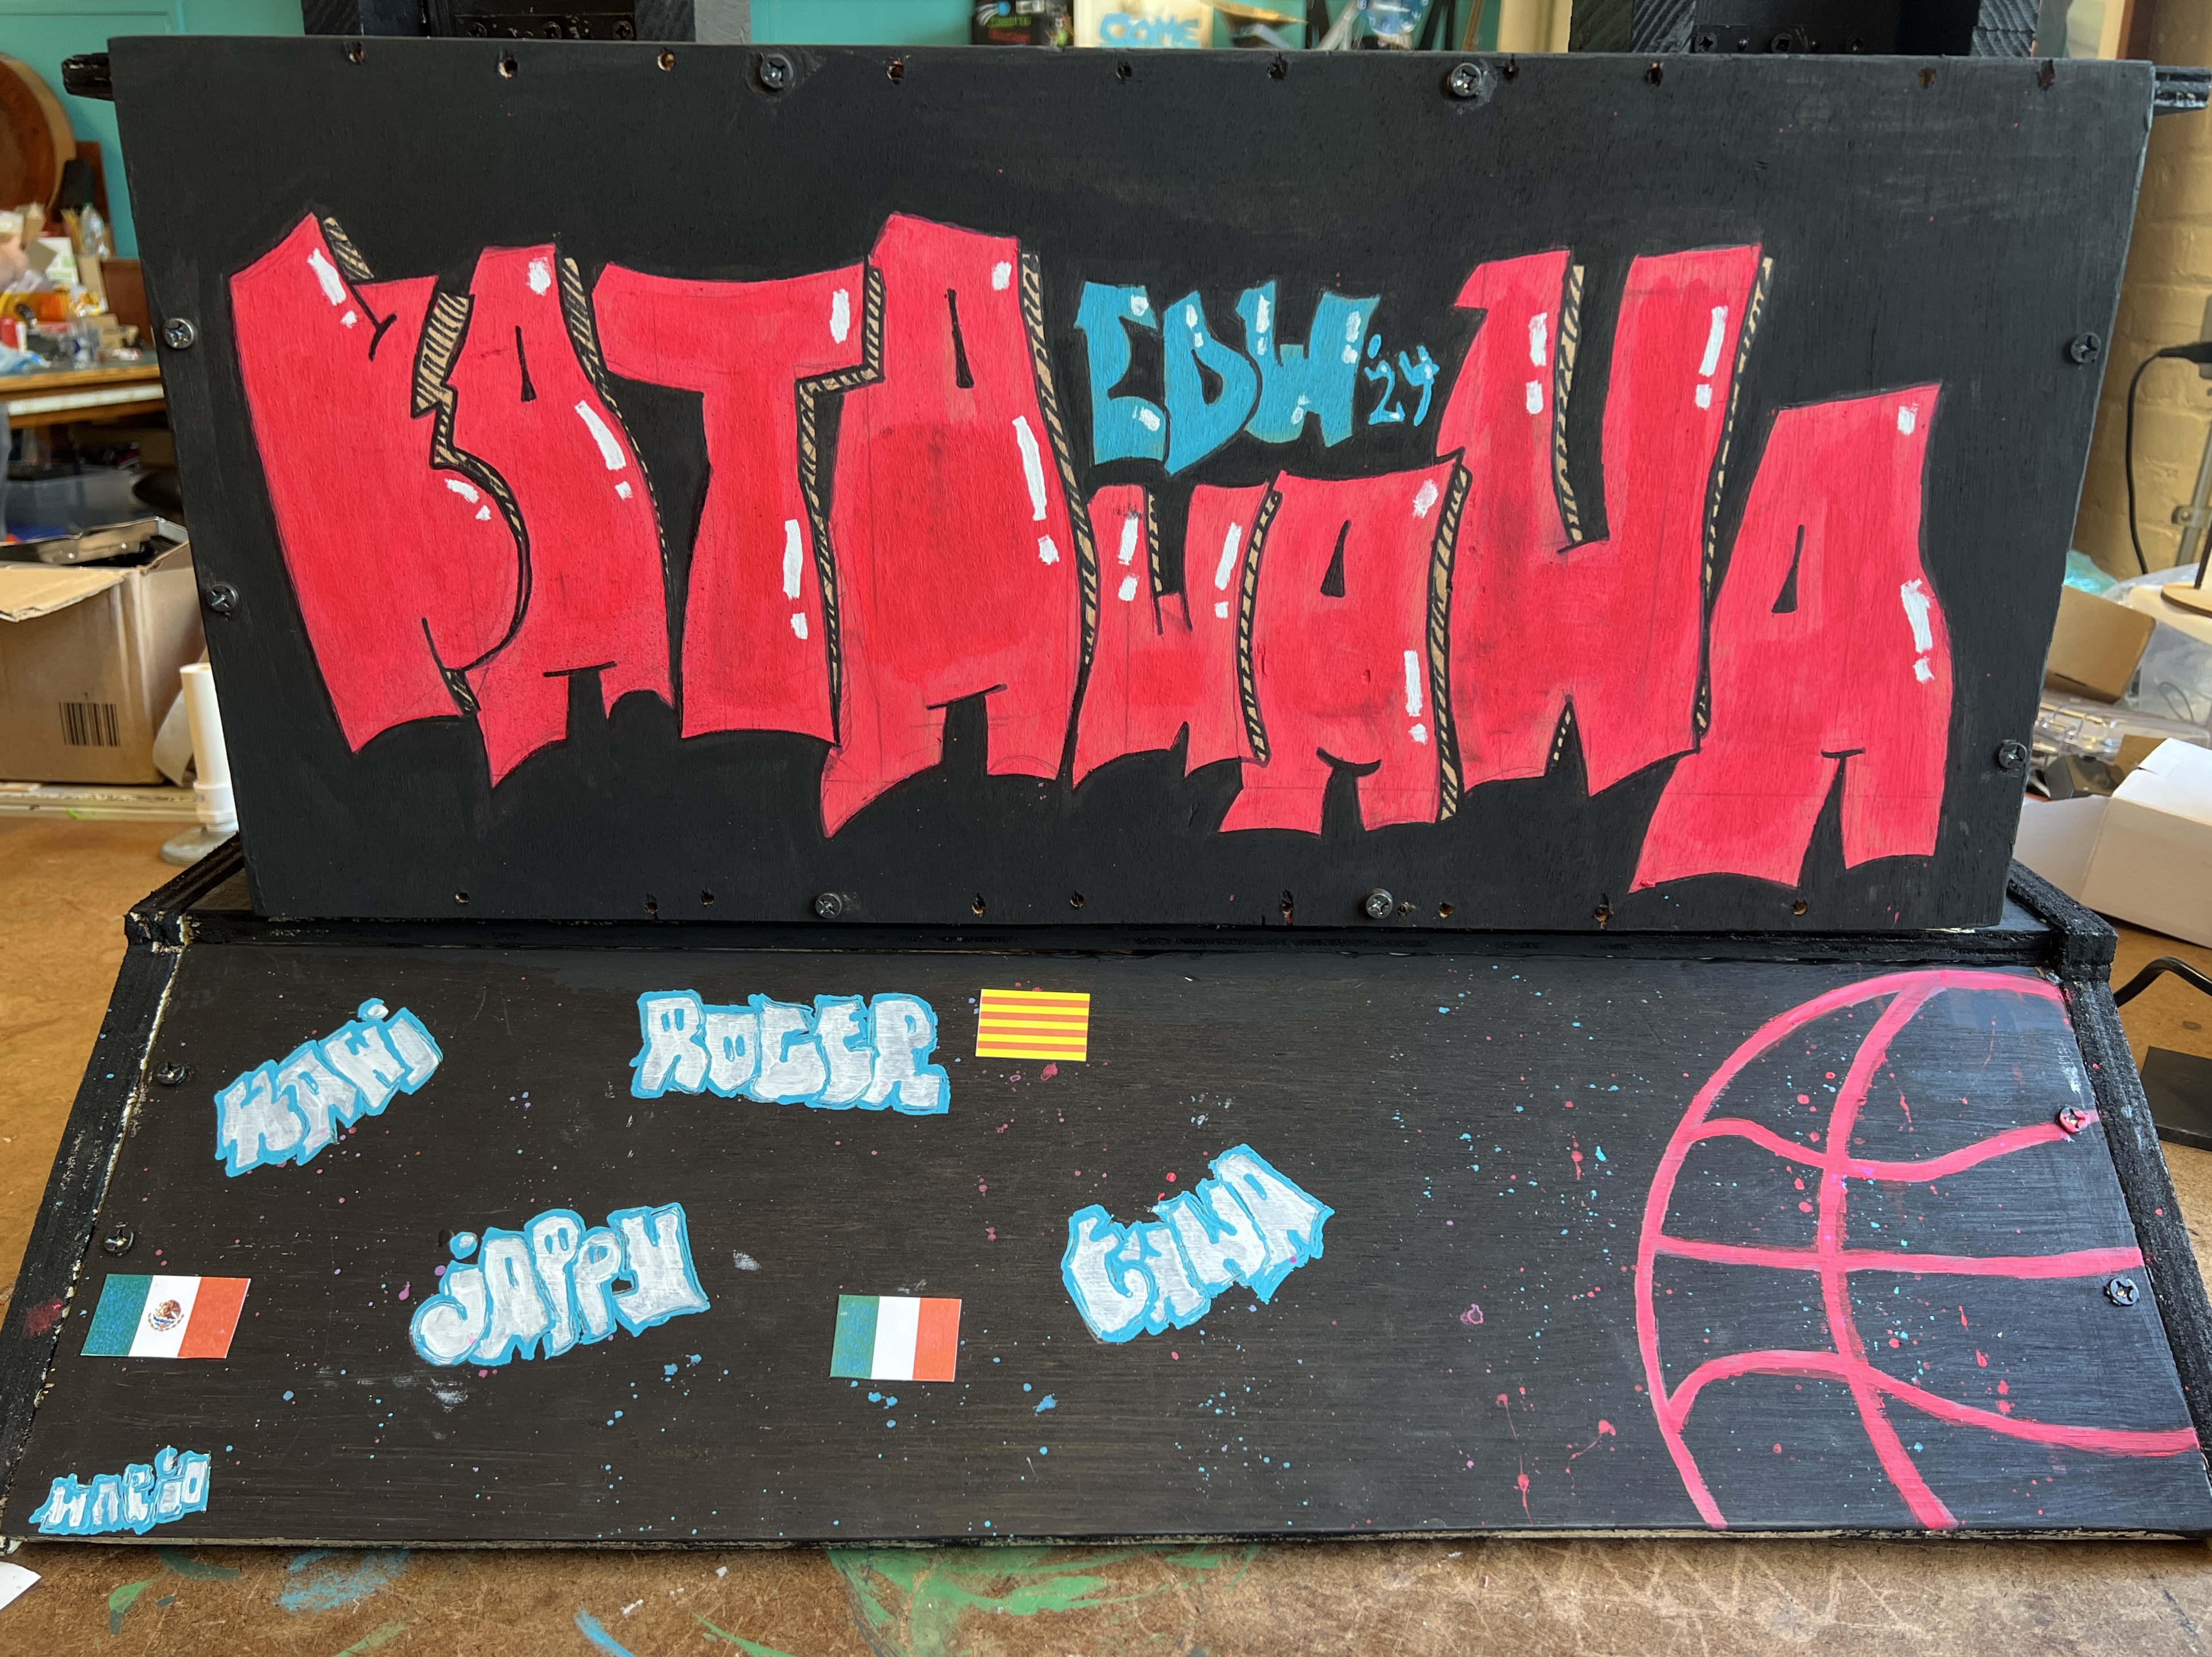 COME
KATAWAWA
EDW '24
KAWi
ROGER
jAPPY
tiWA
MARiO